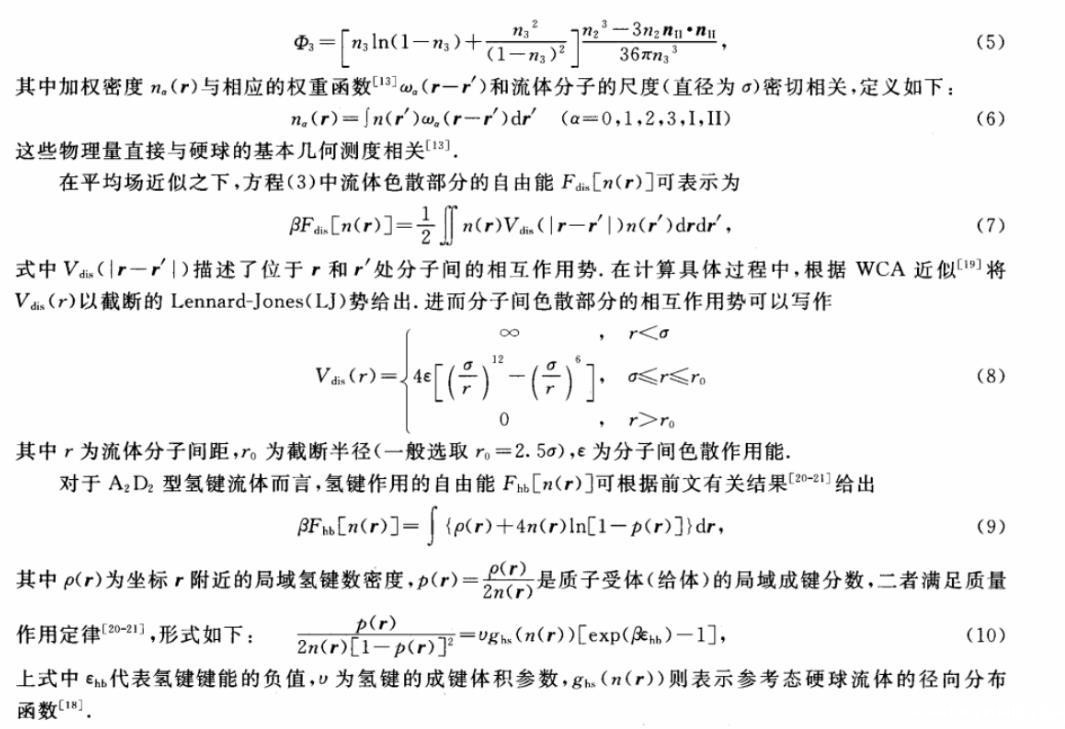 Φ₃=[n₃ln(1−n₃)+n₃²/(1−n₃)²](n₂³−3n₂n_II•n_II)/(36πn₃³), (5)
其中加权密度 nα(r)与相应的权重函数[13]ωα(r−r′)和流体分子的尺度(直径为σ)密切相关,定义如下:
nα(r)=∫n(r′)ωα(r−r′)dr′ (α=0,1,2,3,I,II) (6)
这些物理量直接与硬球的基本几何测度相关[13].
在平均场近似之下,方程(3)中流体色散部分的自由能 F_dis[n(r)]可表示为
βF_dis[n(r)]=1/2∬n(r)V_dis(|r−r′|)n(r′)drdr′, (7)
式中 V_dis(|r−r′|)描述了位于 r 和 r′处分子间的相互作用势.在计算具体过程中,根据 WCA 近似[19]将
V_dis(r)以截断的 Lennard-Jones(LJ)势给出.进而分子间色散部分的相互作用势可以写作
∞ , r<σ
V_dis(r)={4ε[(σ/r)¹²−(σ/r)⁶], σ≤r≤r₀ (8)
0 , r>r₀
其中 r 为流体分子间距,r₀ 为截断半径(一般选取 r₀=2.5σ),ε 为分子间色散作用能.
对于 A₂D₂ 型氢键流体而言,氢键作用的自由能 F_hb[n(r)]可根据前文有关结果[20-21]给出
βF_hb[n(r)]=∫{ρ(r)+4n(r)ln[1−p(r)]}dr, (9)
其中 ρ(r)为坐标 r 附近的局域氢键数密度,p(r)=ρ(r)/2n(r)是质子受体(给体)的局域成键分数,二者满足质量
作用定律[20-21],形式如下: p(r)/2n(r)[1−p(r)]²=υg_hs(n(r))[exp(βε_hb)−1], (10)
上式中 ε_hb代表氢键键能的负值,υ 为氢键的成键体积参数,g_hs(n(r))则表示参考态硬球流体的径向分布
函数[18].